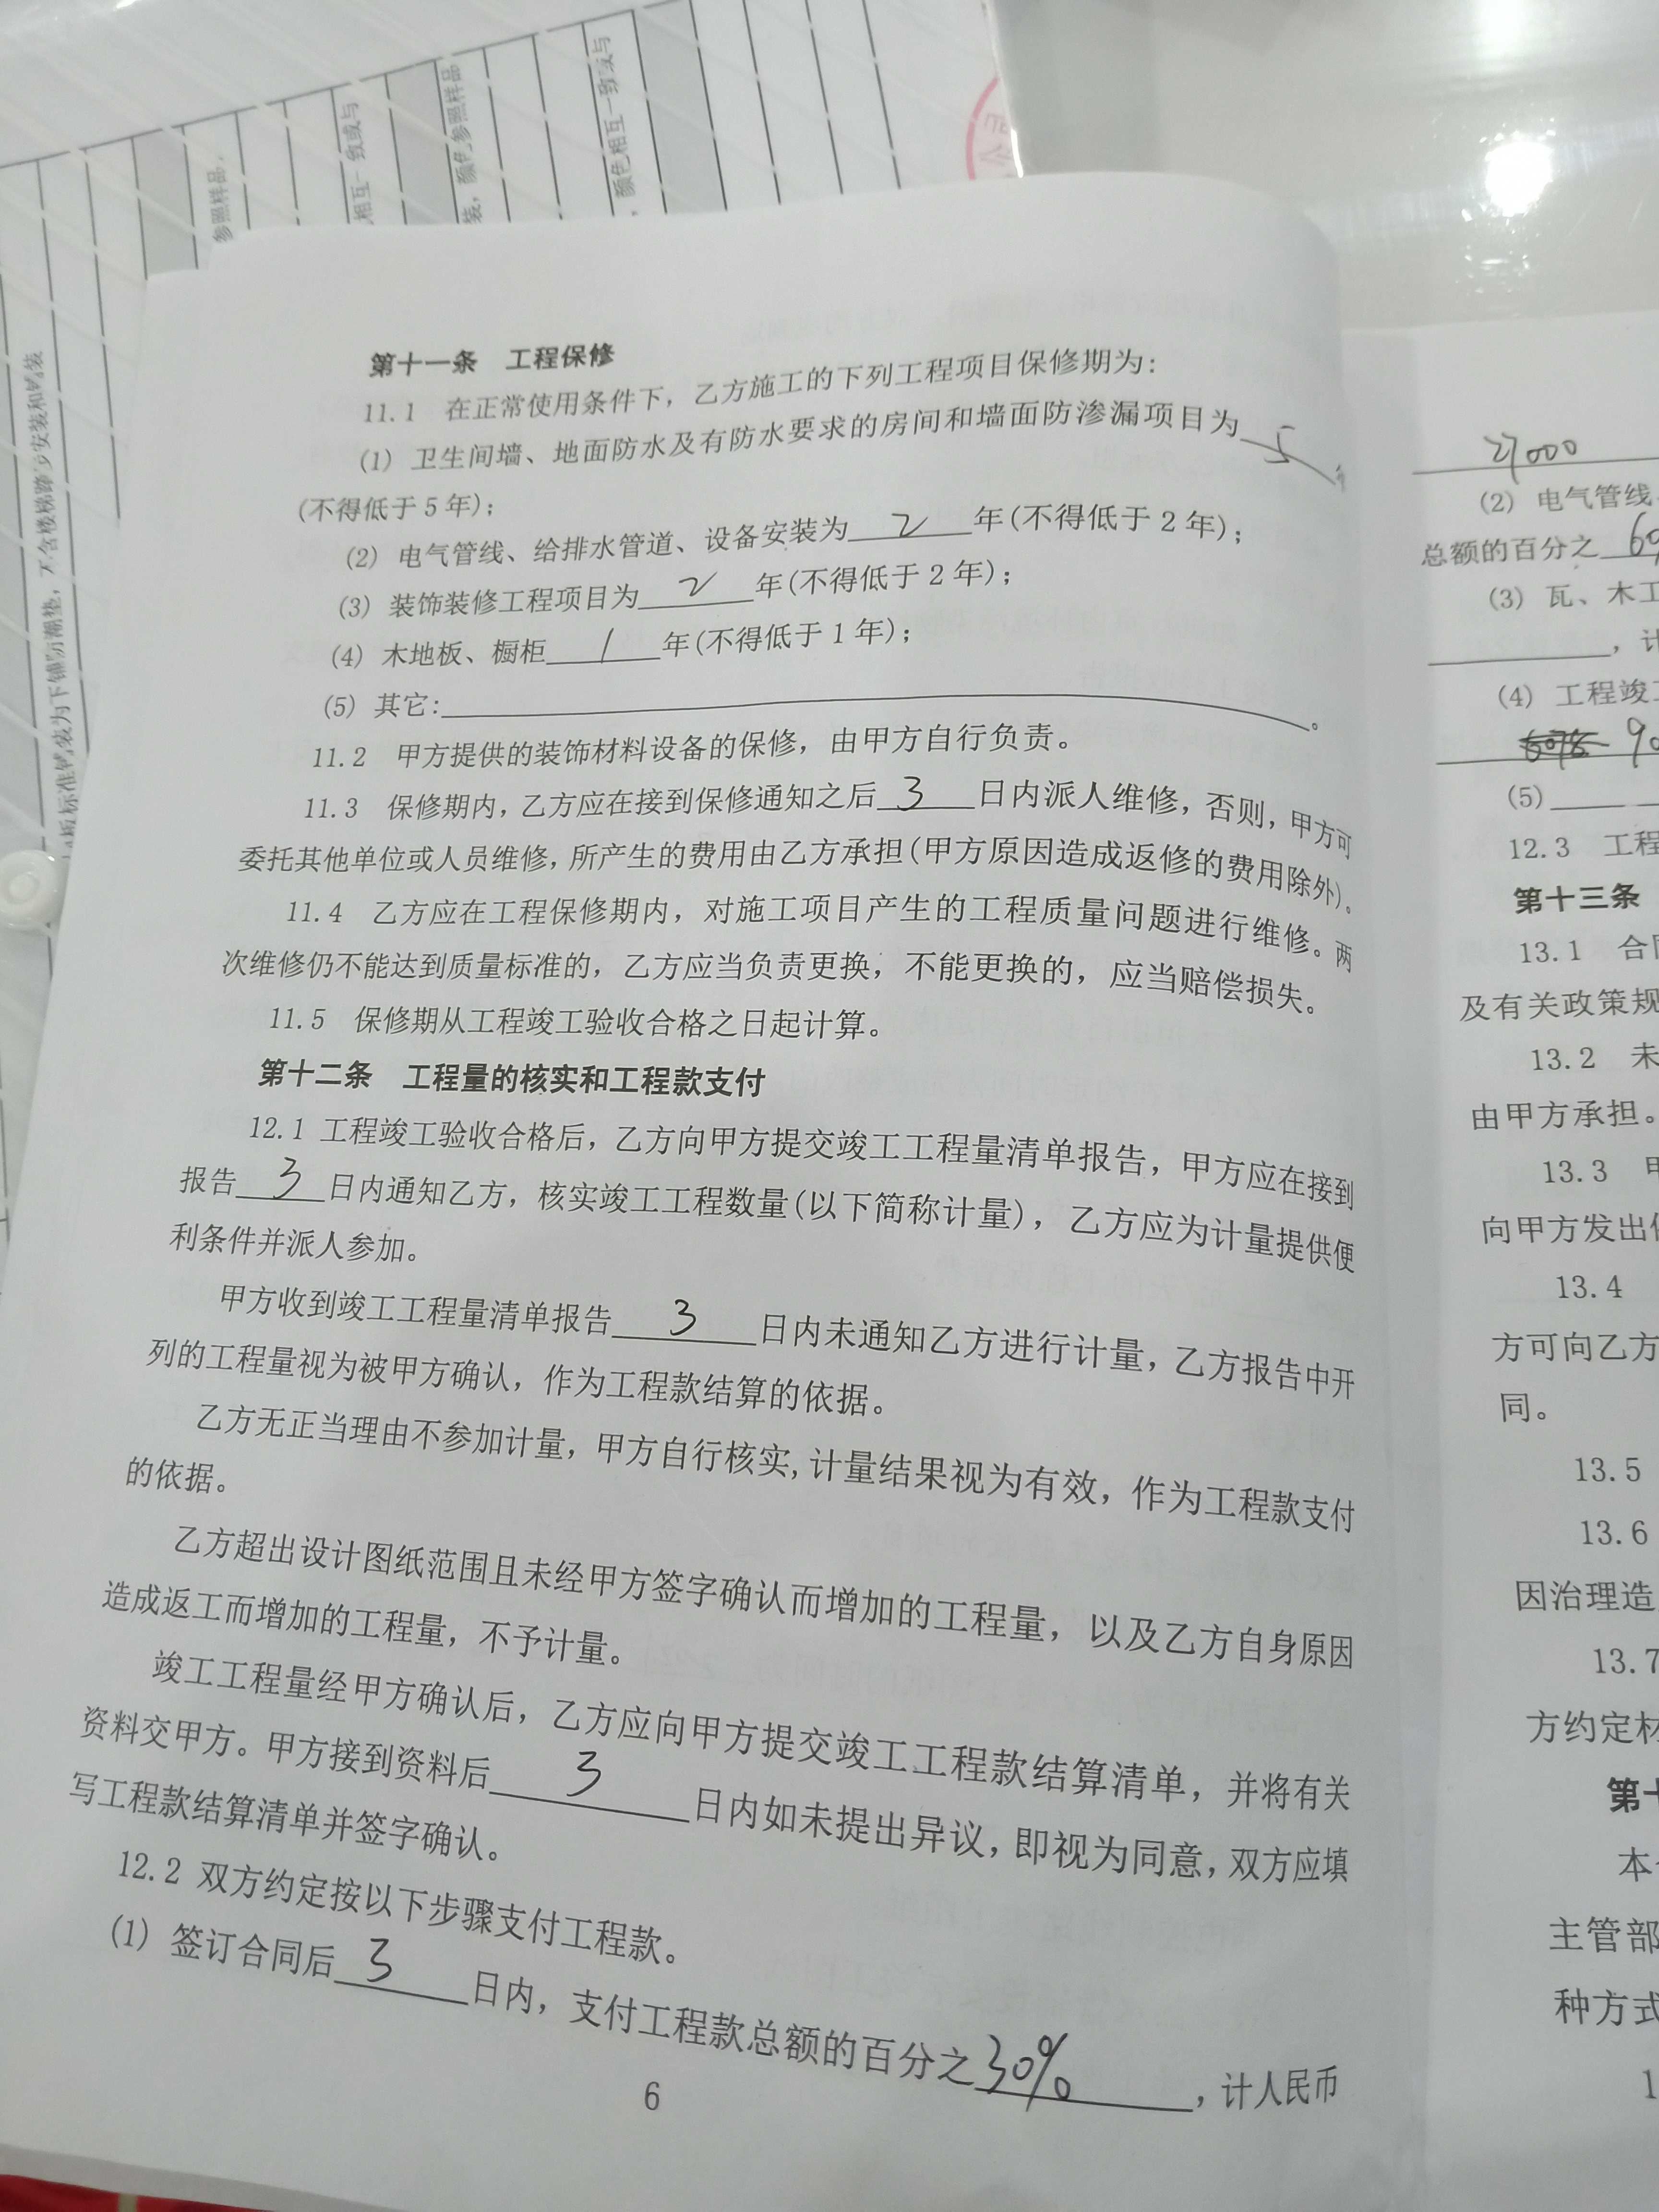 第十一条 工程保修
11.1 在正常使用条件下，乙方施工的下列工程项目保修期为：
(1) 卫生间墙、地面防水及有防水要求的房间和墙面防渗漏项目为 5 年
(不得低于 5 年)；
(2) 电气管线、给排水管道、设备安装为 2 年(不得低于 2 年)；
(3) 装饰装修工程项目为 2 年(不得低于 2 年)；
(4) 木地板、橱柜 1 年(不得低于 1 年)；
(5) 其它： 。
11.2 甲方提供的装饰材料设备的保修，由甲方自行负责。
11.3 保修期内，乙方应在接到保修通知之后 3 日内派人维修，否则，甲方可
委托其他单位或人员维修，所产生的费用由乙方承担(甲方原因造成返修的费用除外)。
11.4 乙方应在工程保修期内，对施工项目产生的工程质量问题进行维修。两
次维修仍不能达到质量标准的，乙方应当负责更换，不能更换的，应当赔偿损失。
11.5 保修期从工程竣工验收合格之日起计算。
第十二条 工程量的核实和工程款支付
12.1 工程竣工验收合格后，乙方向甲方提交竣工工程量清单报告，甲方应在接到
报告 3 日内通知乙方，核实竣工工程数量(以下简称计量)，乙方应为计量提供便
利条件并派人参加。
甲方收到竣工工程量清单报告 3 日内未通知乙方进行计量，乙方报告中开
列的工程量视为被甲方确认，作为工程款结算的依据。
乙方无正当理由不参加计量，甲方自行核实，计量结果视为有效，作为工程款支付
的依据。
乙方超出设计图纸范围且未经甲方签字确认而增加的工程量，以及乙方自身原因
造成返工而增加的工程量，不予计量。
竣工工程量经甲方确认后，乙方应向甲方提交竣工工程款结算清单，并将有关
资料交甲方。甲方接到资料后 3 日内如未提出异议，即视为同意，双方应填
写工程款结算清单并签字确认。
12.2 双方约定按以下步骤支付工程款。
(1) 签订合同后 3 日内，支付工程款总额的百分之 30% ，计人民币
6
(2) 电气管线
总额的百分之 60
(3) 瓦、木工
，计
(4) 工程竣
(5)
12.3 工程
第十三条
13.1 合
及有关政策规
13.2 未
由甲方承担。
13.3 甲
向甲方发出
13.4
方可向乙方
同。
13.5
13.6
因治理造
13.7
方约定材
第十
本
主管部
种方式
1
参照样品，
相互一致或与
装，颜色参照样品
，颜色相互一致或与